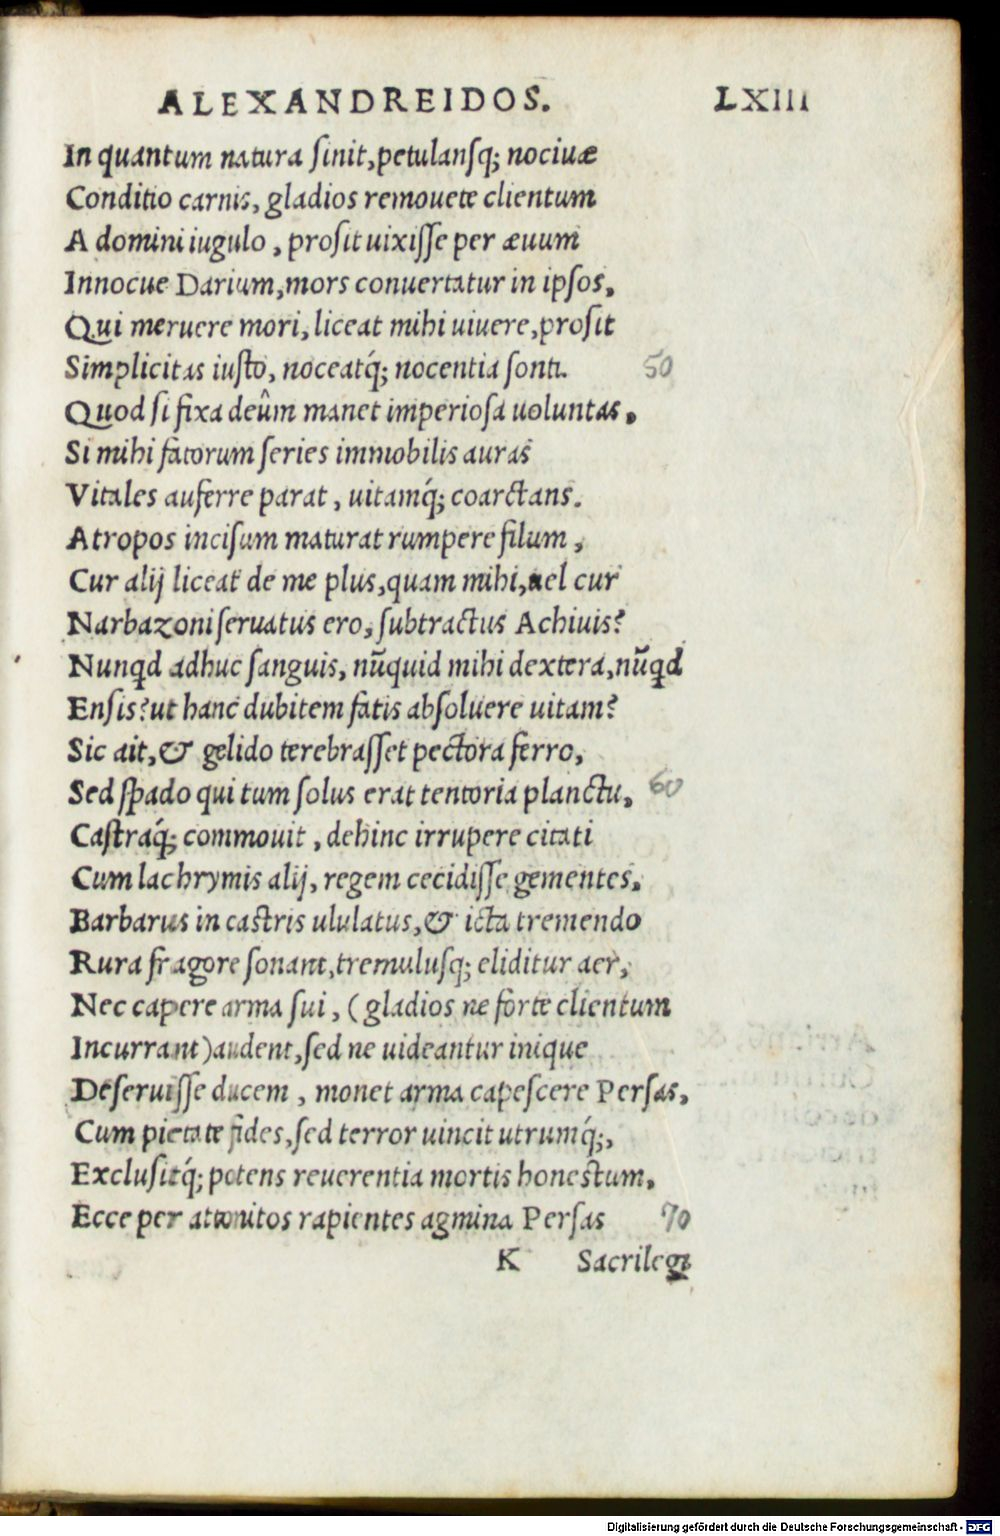 ALEXANDREIDOS. LXIII
In quantum natura ſinit, petulanſq; nociuæ
Conditio carnis, gladios remouete clientum
A domini iugulo, proſit uixiſſe per æuum
Innocue Darium, mors conuertatur in ipſos,
Qui meruere mori, liceat mihi uiuere, proſit
Simplicitas iuſto, noceatq́; nocentia ſonti. 50
Quod ſi fixa deûm manet imperioſa uoluntas,
Si mihi fatorum ſeries immobilis auras
Vitales auferre parat, uitamq́; coarctans.
Atropos inciſum maturat rumpere filum,
Cur alij liceat de me plus, quam mihi, uel cur
Narbazoni ſeruatus ero, ſubtractus Achiuis?
Nunqd adhuc ſanguis, nũquid mihi dextera, nũqd
Enſis? ut hanc dubitem fatis abſoluere uitam?
Sic ait, & gelido terebraſſet pectora ferro,
Sed ſpado qui tum ſolus erat tentoria planctu, 60
Caſtraq́; commouit, dehinc irrupere citati
Cum lachrymis alij, regem cecidiſſe gementes.
Barbarus in caſtris ululatus, & icta tremendo
Rura fragore ſonant, tremulusq; eliditur aer,
Nec capere arma ſui, (gladios ne forte clientum
Incurrant) audent, ſed ne uideantur inique
Deſeruiſſe ducem, monet arma capeſcere Perſas,
Cum pietate fides, ſed terror uincit utrumq́;,
Excluſitq́; potens reuerentia mortis honeſtum.
Ecce per attonitos rapientes agmina Perſas 70
K Sacrilegi
Digitalisierung gefördert durch die Deutsche Forschungsgemeinschaft - DFG